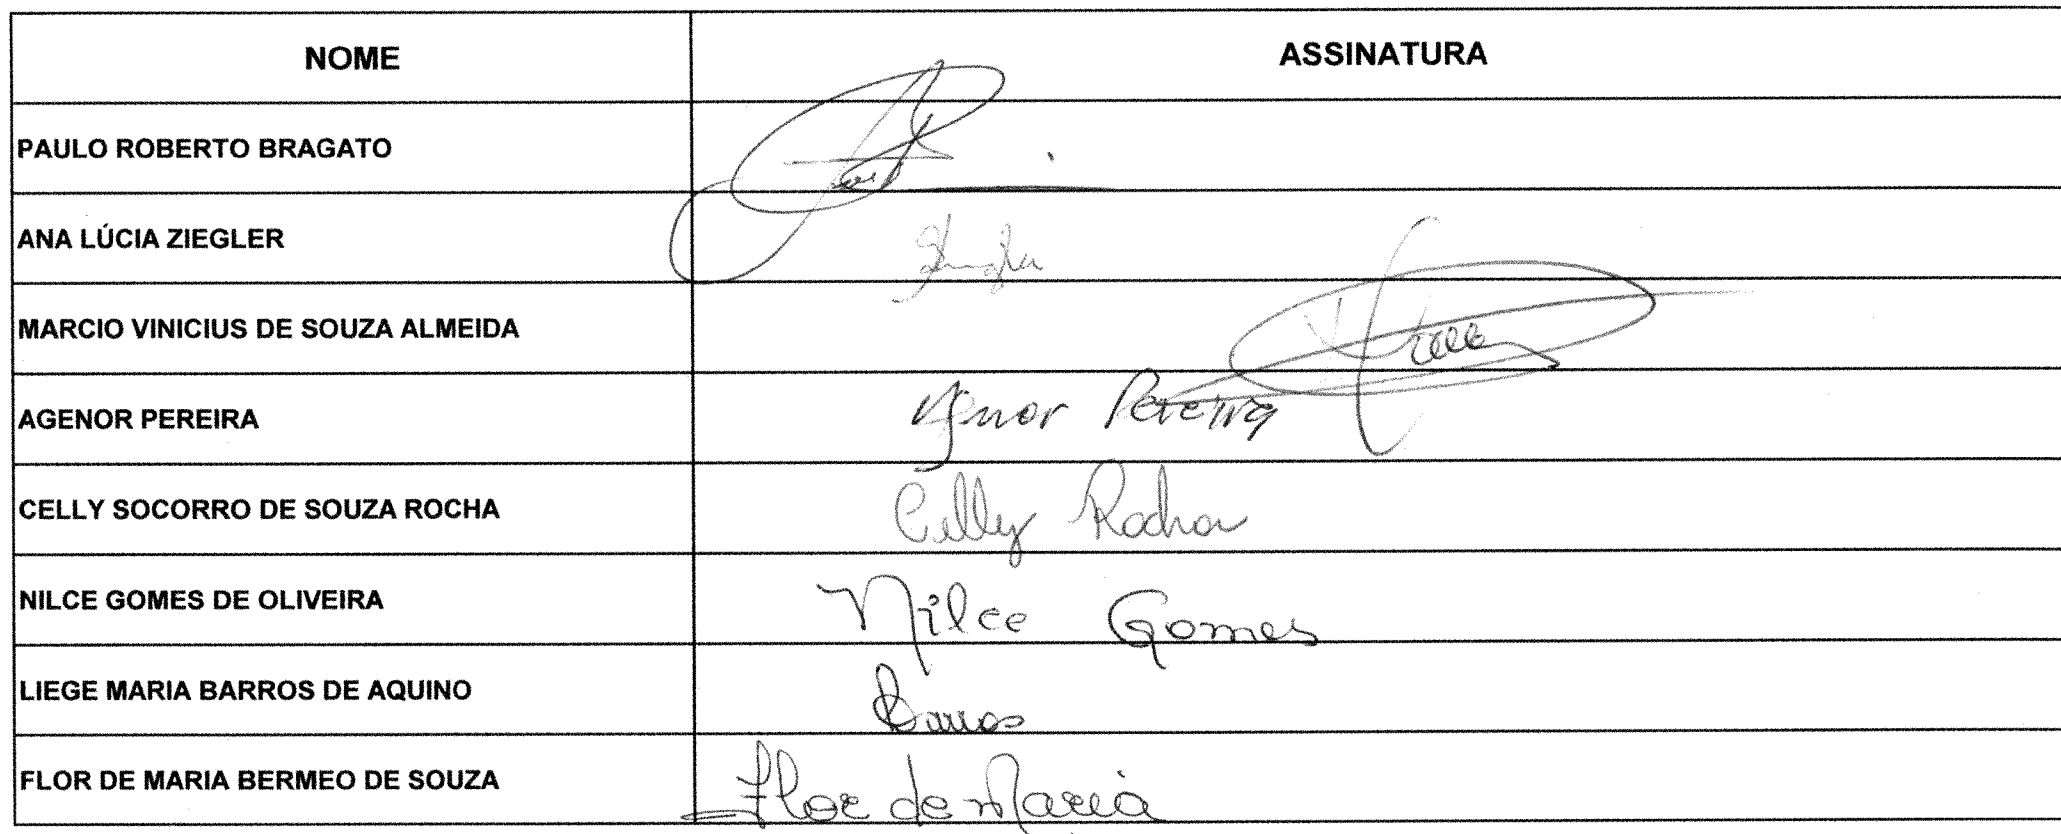 NOME ASSINATURA
PAULO ROBERTO BRAGATO
ANA LÚCIA ZIEGLER
MARCIO VINICIUS DE SOUZA ALMEIDA
AGENOR PEREIRA Agenor Pereira
CELLY SOCORRO DE SOUZA ROCHA Celly Rocha
NILCE GOMES DE OLIVEIRA Nilce Gomes
LIEGE MARIA BARROS DE AQUINO Barros
FLOR DE MARIA BERMEO DE SOUZA Flor de Maria